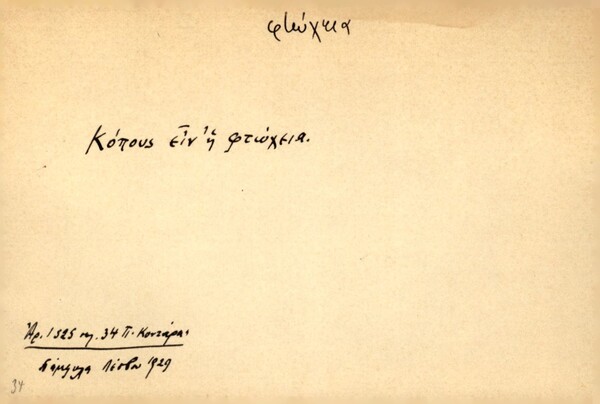 φτώχεια
Κόπους εἶν' ἡ φτώχεια.
Ἀρ. 1525 σελ. 34 Π. Κοντάρης
Πάμφυλα Λέσβου 1929
34